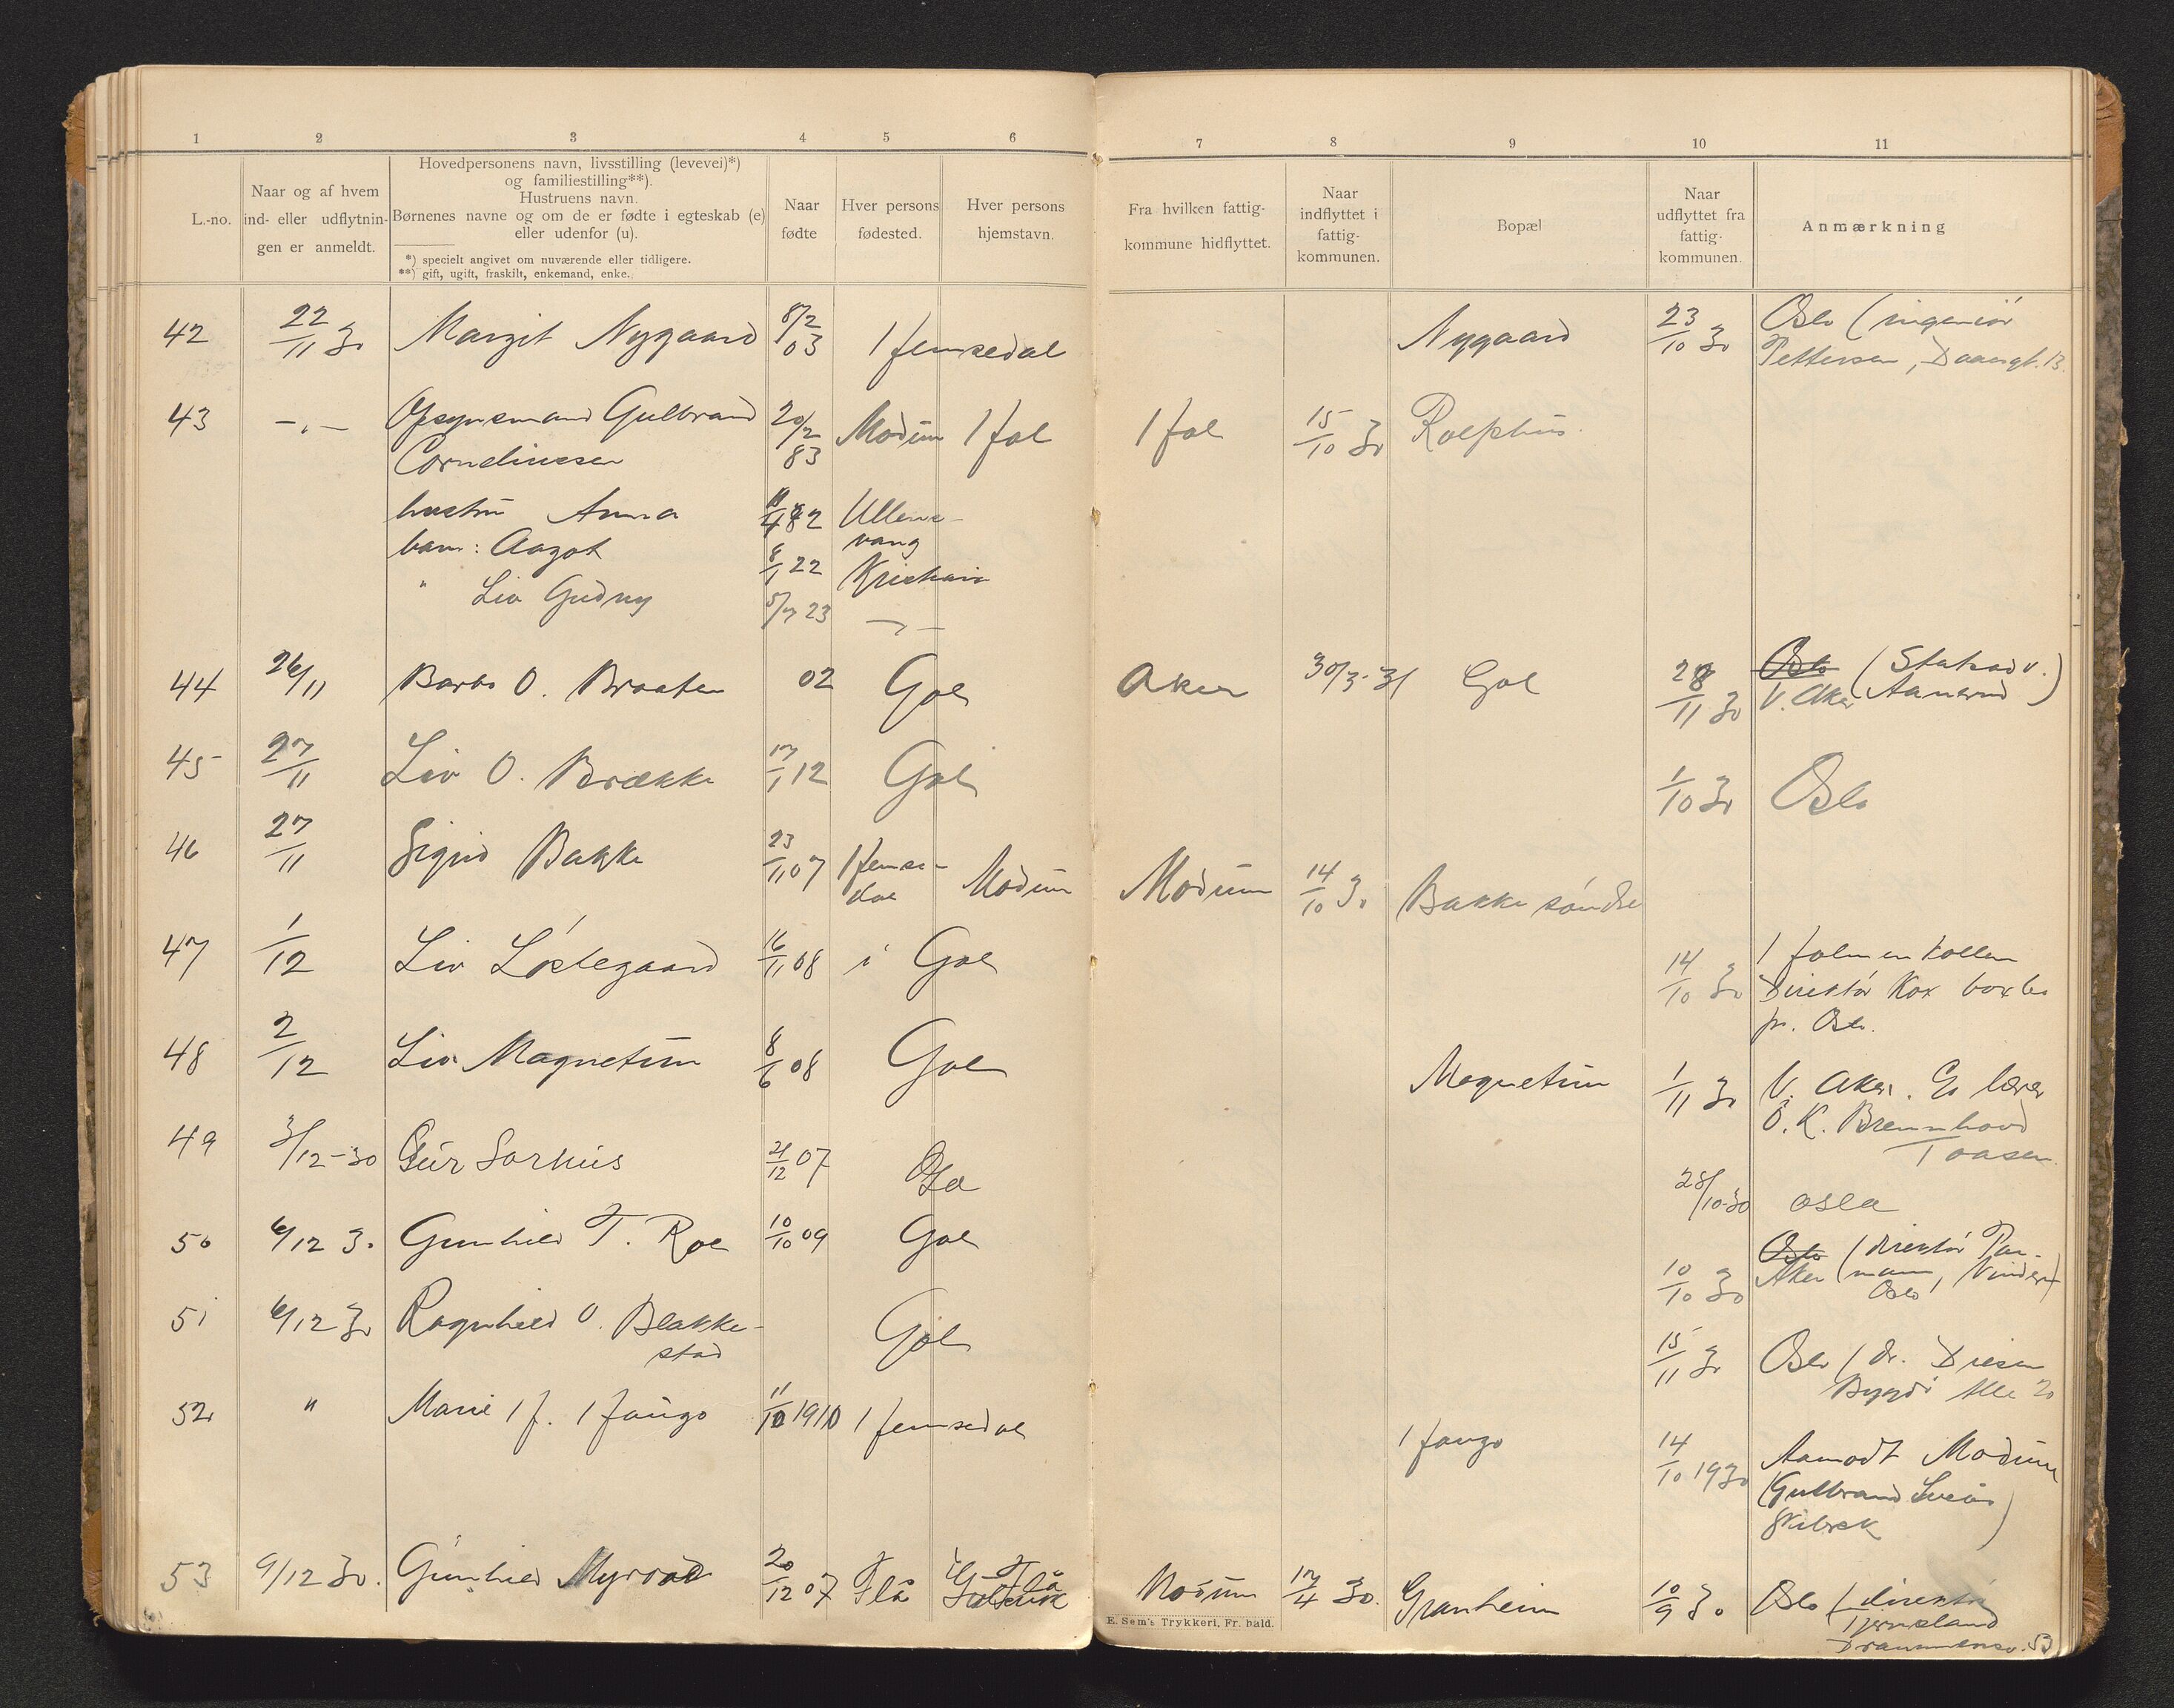 1 2 3 4 5 6 7 8 9 10 11
L.-no.
Naar og af hvem
ind- eller udflytnin-
gen er anmeldt.
Hovedpersonens navn, livsstilling (levevei)*)
og familiestilling**).
Hustruens navn.
Børnenes navne og om de er fødte i egteskab (e)
eller udenfor (u).
*) specielt angivet om nuværende eller tidligere.
**) gift, ugift, fraskilt, enkemand, enke.
Naar
fødte
Hver persons
fødested.
Hver persons
hjemstavn.
Fra hvilken fattig-
kommune hidflyttet.
Naar
indflyttet i
fattig-
kommunen.
Bopæl
Naar
udflyttet fra
fattig-
kommunen.
Anmærkning
42 22/11 30 Margit Nygaard 8/2 03 Hemsedal Nygaard 23/10 30 Oslo (ingeniör
Pettersen,
43 -"- Opsynsmand Gulbrand 20/2 83 Modum Hol Hol 15/10 30 Rolfshus
Corneliussen
hustru Anna 82 Ullens-
vang
barn: Aagot 8/1 22 Kristiania
" Liv Gudny 5/7 23 -"-
44 26/11 Barbo O. Braaten 02 Gol Aker 30/3-31 Gol 28/11 30 Oslo (Statsadv.
V. Aker Aanerud)
45 27/11 Liv O. Brække 17/1 12 Gol 1/10 30 Oslo
46 27/11 Sigrid Bakke 23/11 07 Hemse-
dal Modum Modum 14/10 30 Bakke söndre
47 1/12 Liv Löstegaard 16/11 08 i Gol 14/10 30 Holmenkollen
Direktör Kox
pr. Oslo.
48 2/12 Liv Magnetun 8/6 08 Gol Magnetun 1/11 30 V. Aker. lærer
O. K. Brennhovd
Taasen
49 3/12-30 Guri Sorhus 21/12 07 Gol 28/10-30 Oslo
50 6/12 30 Gunhild T. Roe 10/10 09 Gol 10/10 30 Oslo (direktör
Aker Vinderen
Oslo
51 6/12 30 Ragnhild O. Blakke-
stad Gol 15/11 30 Oslo (dr.
Bygdö Alle 20
52 " Marie H. Haugo 11/10 1910 Hemsedal Haugo 14/10 1930 Aamodt Modum
(Gulbrand
Skibrek)
53 9/12 30. Gunhild Myrvold 20/12 07 Flå Flå Modum 17/4 30. Granheim 10/9 30 Oslo (direktör
Tjernsland
Drammensv. 53
E. Sem's Trykkeri, Fr. hald.